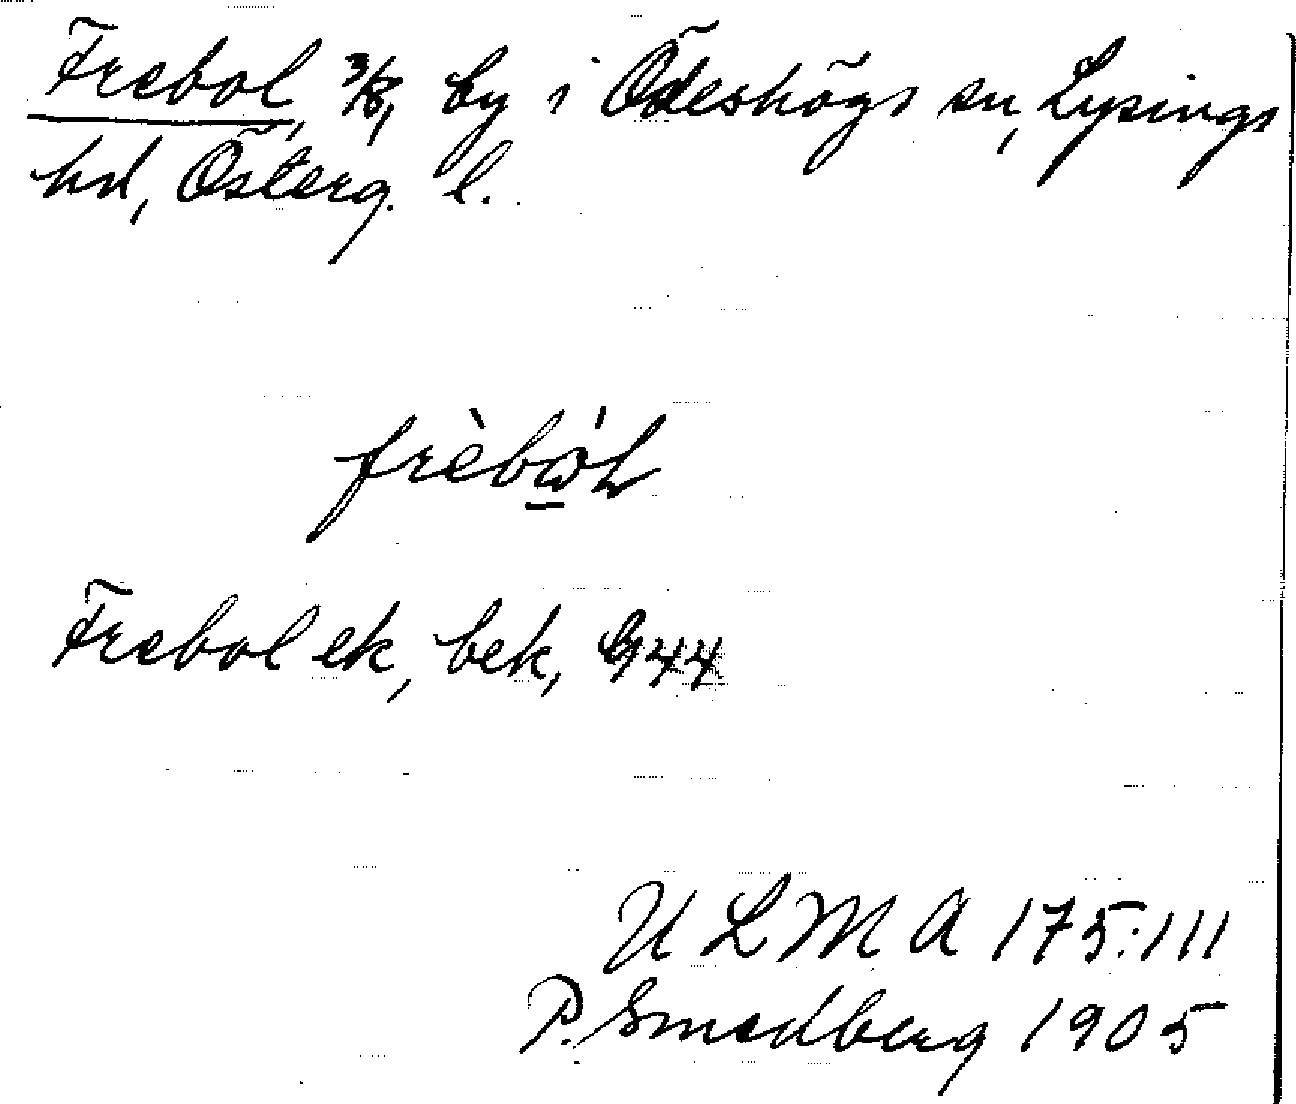 Frebol, 3/8, by i Ödeshögs sn, Lysings
hd, Österg. l.
Frebol ek, bek,
U L M A 175:111
P. Smedberg 1905